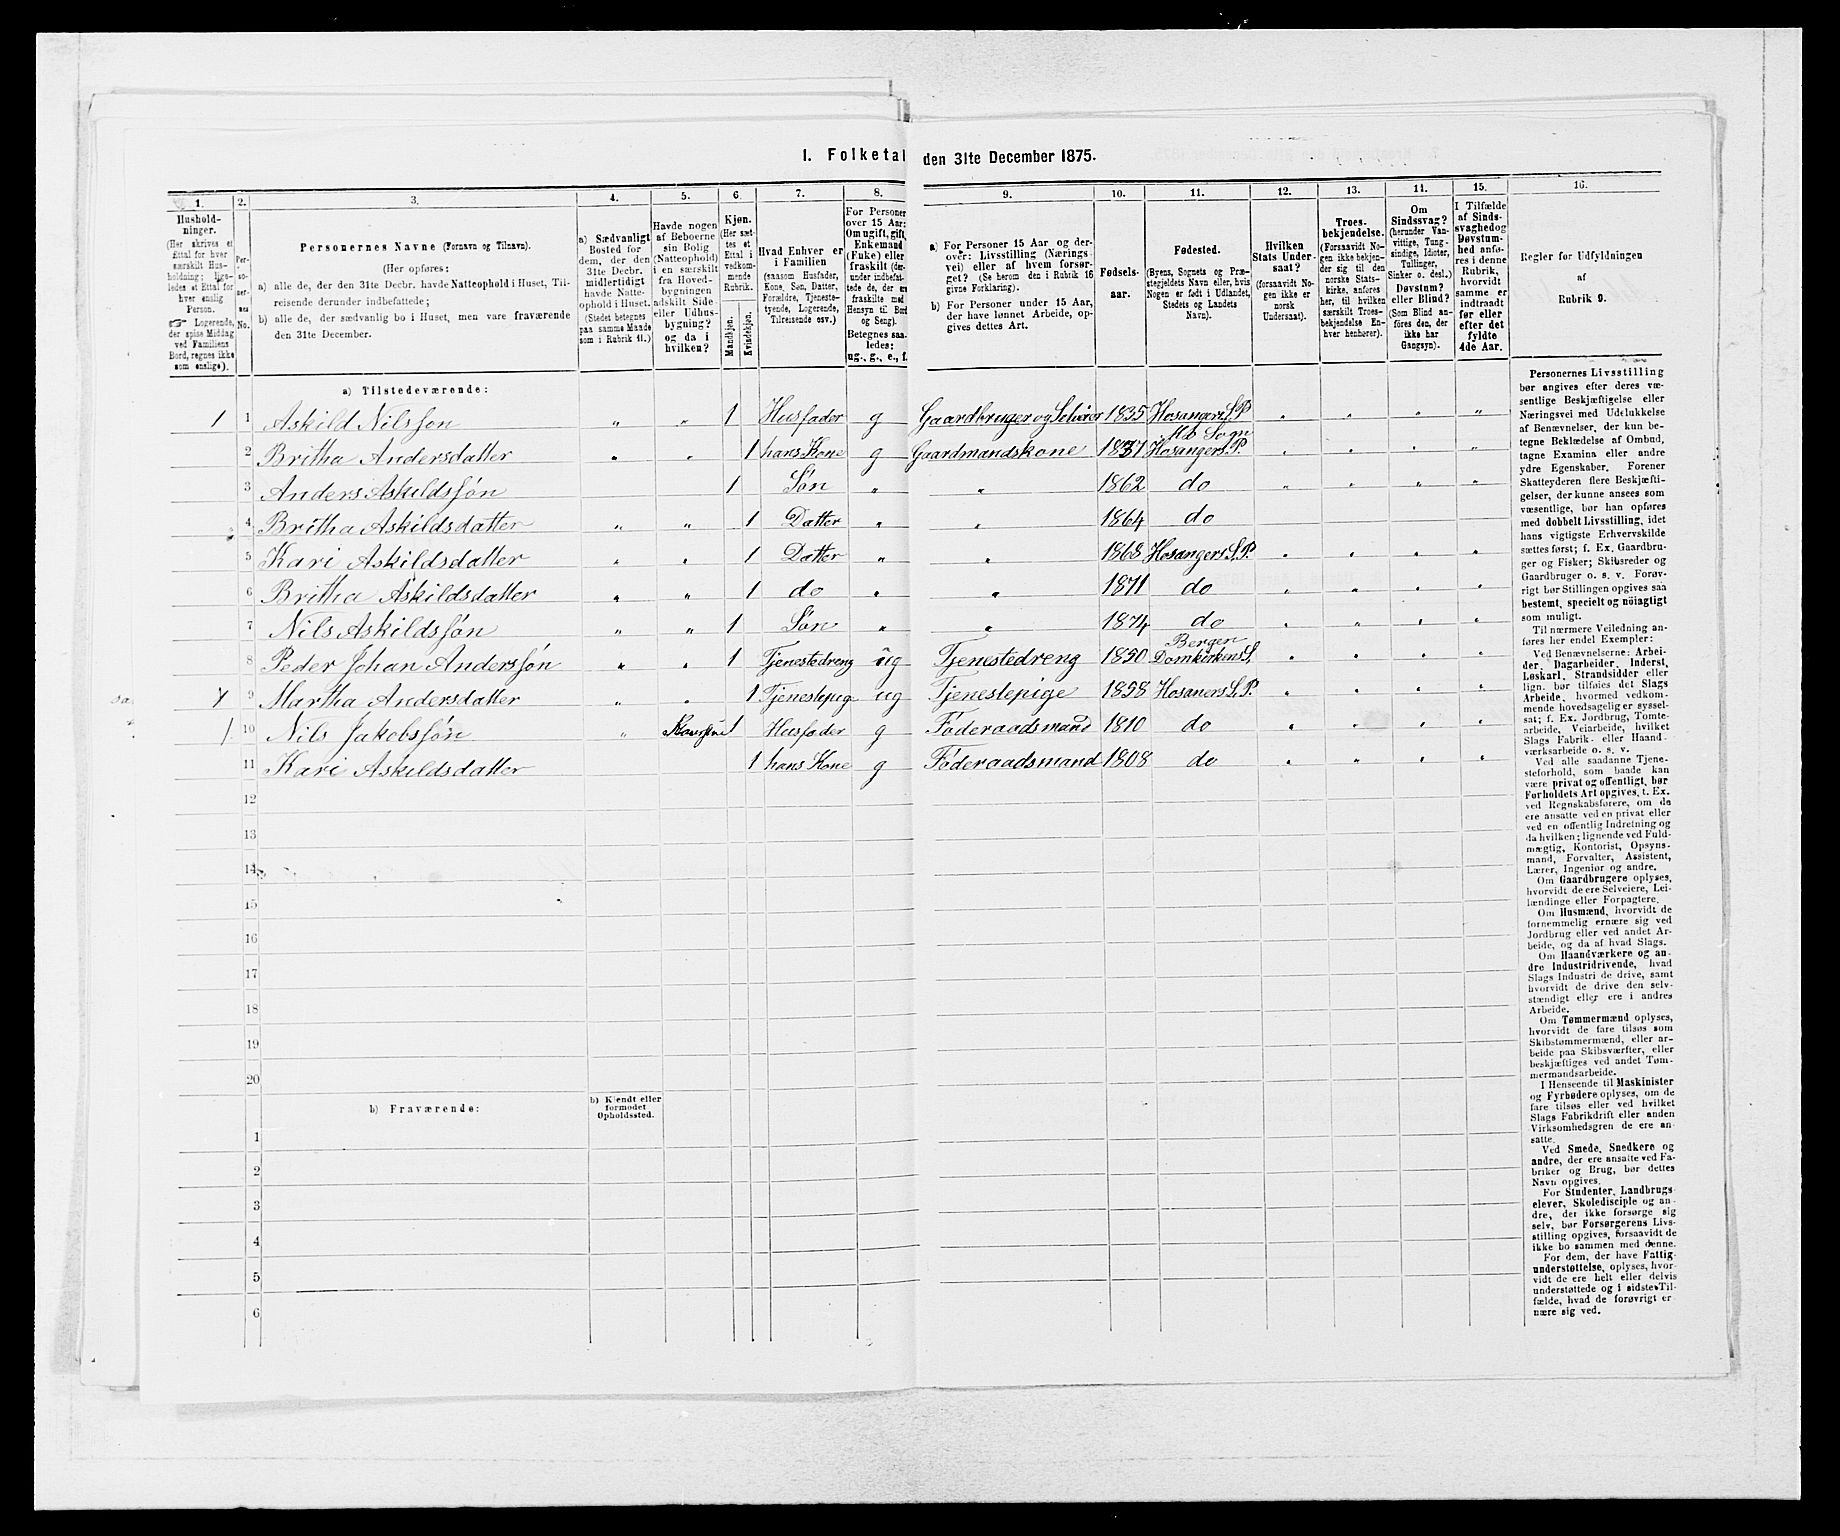 I. Folketal den 31te December 1875.
1. 2. 3. 4. 5. 6. 7. 8. 9. 10. 11. 12. 13. 14. 15. 16.
Hushold-
ninger.
(Her skrives et
Ettal for hver
særskilt Hus-
holdning; lige-
ledes et Ettal for
hver enslig
Person.
☞ Logerende,
der spise Middag
ved Familiens
Bord, regnes ikke
som enslige).
Per-
so-
ner-
nes
No.
Personernes Navne (Fornavn og Tilnavn).
(Her opføres:
a) alle de, der den 31te Decbr. havde Natteophold i Huset, Til-
reisende derunder indbefattede;
b) alle de, der sædvanlig bo i Huset, men vare fraværende
den 31te December.
a) Sædvanligt
Bosted for
dem, der den
31te Decbr.
midlertidigt
havde Natte-
ophold i Huset.
(Stedet betegnes
paa samme Maade
som i Rubrik 11.)
Havde nogen
af Beboerne
sin Bolig
(Natteophold)
i en særskilt
fra Hoved-
bygningen
adskilt Side-
eller Udhus-
bygning?
og da i
hvilken?
Kjøn.
(Her sæt-
tes et
Ettal i
vedkom-
mende
Rubrik.
Mandkjøn.
Kvindekjøn.
Hvad Enhver er
i Familien
(saasom Husfader,
Kone, Søn, Datter,
Forældre, Tjeneste-
tyende, Logerende,
Tilreisende osv.)
For Personer
over 15 Aar:
Om ugift, gift,
Enkemand
(Fuke) eller
fraskilt (der-
under indbefat-
tede de, der ere
fraskilte med
Hensyn til Bord
og Seng).
Betegnes saa-
ledes:
ug., g., e., f.
a) For Personer 15 Aar og der-
over: Livsstilling (Nærings-
vei) eller af hvem forsør-
get? (Se herom den i Rubrik 16
givne Forklaring).
b) For Personer under 15 Aar,
der have lønnet Arbeide, op-
gives dettes Art.
Fødsels-
aar.
Fødested.
(Byens, Sognets og Præ-
stegjeldets Navn eller, hvis
Nogen er født i Udlandet,
Stedets og Landets
Navn).
Hvilken
Stats Under-
saat?
(forsaavidt No-
gen ikke er
norsk
Undersaat).
Troes-
bekjendelse.
(Forsaavidt No-
gen ikke bekjen-
der sig til den
norske Stats-
kirke, anføres
her, til hvilken
særskilt Troes-
bekjendelse En-
hver henhører).
Om
Sindssvag?
(herunder Van-
vittige, Tung-
sindige, Idioter,
Tullinger,
Sinker o. desl.)
Døvstum?
eller Blind?
(Som Blind an-
føres den, der
ikke har
Gangsyn).
I Tilfælde
af Sinds-
svaghed og
Døvstum-
hed anfø-
res i denne
Rubrik,
hvorvidt
samme er
indtraadt
før eller
efter det
fyldte
4de Aar.
Regler for Udfyldningen
af
Rubrik 9.
a) Tilstedeværende:
1 1 Askild Nilssøn " " 1 Husfader g Gaardbruger og Selveier 1835 Hosangers S. P
2 Britha Andersdatter " " 1 hans Kone g Gaardmandskone 1837 Sogn Hosangers. P.
3 Anders Askildssøn 1 Søn " " 1862 do
4 Britha Askildsdatter " " 1 Datter " " 1864 do
5 Kari Askildsdatter " " 1 Datter " " 1868 Hosangers S. P.
6 Britha Askildsdatter " " 1 do " " 1871 do
7 Nils Askildssøn " " 1 Søn " " 1874 do
8 Peder Johan Anderssøn " " 1 Tjenestedreng ug Tjenestedreng 1850 Bergen Domkirkens S.
9 Martha Andersdatter " " 1 Tjenestepig ug Tjenestepige 1858 Hosaners S. P.
1 10 Nils Jakobssøn " 1 Husfader g Føderaadsmand 1810 do
11 Kari Askildsdatter 1 hans Kone g Føderaadsmand 1808 do
12
13
14
15
16
17
18
19
20
b) Fraværende:
b) Kjendt eller
formodet
Opholdssted.
1
2
3
4
5
6
Personernes Livsstilling
bør angives efter deres væ-
sentlige Beskjæftigelse eller
Næringsvei med Udelukkelse
af Benævnelser, der kun be-
tegne Beklædelse af Ombud,
tagne Examina eller andre
ydre Egenskaber. Forener
Skatteyderen flere Beskjæfti-
gelser, der kunne ansees som
væsentlige, bør han opføres
med dobbelt Livsstilling, idet
hans vigtigste Erhvervskilde
sættes først; f. Ex. Gaardbru-
ger og Fisker; Skibsreder og
Gaardbruger o. s. v. Forøv-
rigt bør Stillingen opgives saa
bestemt, specielt og nöiagtigt
som muligt.
Til nærmere Veiledning an-
føres her endel Exempler:
Ved Benævnelserne: Arbei-
der, Dagarbeider, Inderst,
Løskarl, Strandsidder eller
lign. bør tilføies det Slags
Arbeide, hvormed vedkom-
mende hovedsagelig er syssel-
sat; f. Ex. Jordbrug, Tomte-
arbeide, Veiarbeide, hvilket
Slags Fabrik- eller Haand-
værksarbeide o. s. v.
Ved alle saadanne Tjene-
steforhold, som baade kan
være privat og offentligt, bør
Forholdets Art opgives, t. Ex.
ved Regnskabsførere, om de
ere ansatte ved en privat eller
ved en offentlig Indretning og
da hvilken; lignende ved Fuld-
mægtig, Kontorist, Opsyns-
mand, Forvalter, Assistent,
Lærer, Ingeniør og andre.
Om Gaardbrugere oplyses,
hvorvidt de ere Selveiere, Lei-
lændinge eller Forpagtere.
Om Husmænd, hvorvidt de
fornemmelig ernære sig ved
Jordbrug eller ved andet Ar-
beide, og da af hvad Slags.
Om Haandværkere og an-
dre Industridrivende, hvad
Slags Industri de drive, samt
hvorvidt de drive den selv-
stændigt eller ere i andres
Arbeide.
Om Tømmermænd oplyses,
hvorvidt de fare tilsøs som
Skibstømmermænd, eller ar-
beide paa Skibsværfter, eller
beskjæftiges ved andet Tøm-
mermandsarbeide.
I Henseende til Maskinister
og Fyrbødere oplyses, om de
fare tilsøs eller ved hvilket
Slags Fabrikdrift eller anden
Virksomhedsgren de ere an-
satte.
Ved Smede, Snedkere og
andre, der ere ansatte ved Fa-
briker og Brug, bør dettes
Navn opgives.
For Studenter, Landbrugs-
elever, Skoledisciple og an-
dre, der ikke forsørge sig
selv, bør Forsørgerens Livs-
stilling opgives, forsaavidt de
ikke bo sammen med denne.
For dem, der have Fattig-
understøttelse, oplyses, hvor-
vidt de ere helt eller delvis
understøttede og i sidste Til-
fælde, hvad de forøvrigt er-
nære sig ved.